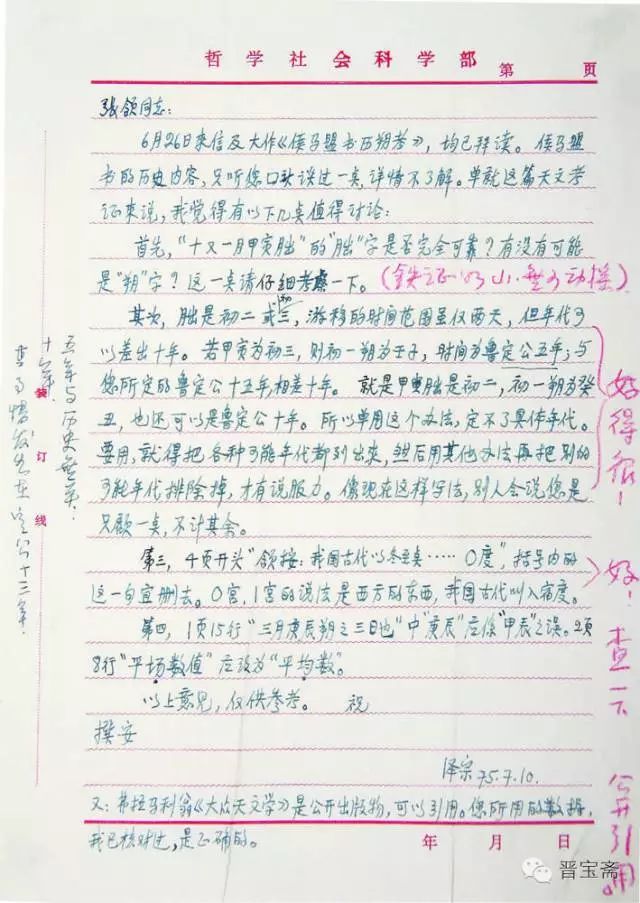 哲学社会科学部
第 页
张颔同志：
6月26日来信及大作《侯马盟书历朔考》，均已拜读。侯马盟
书的历史内容，只听您口头谈过一点，详情不了解。单就这篇天文考
证来说，我觉得有以下几点值得讨论：
首先，“十又一月甲寅朏”的“朏”字是否完全可靠？有没有可能
是“朔”字？这一点请仔细考虑一下。
（铁证如山，无可动摇）
其次，朏是初二或初三，游移的时间范围虽仅两天，但年代可
以差出十年。若甲寅为初三，则初一朔为壬子，时间为鲁定公五年；与
您所定的鲁定公十五年，相差十年。就是甲寅朏是初二，初一朔为癸
丑，也还可以是鲁定公十年。所以单用这个办法，定不了具体年代。
要用，就得把各种可能年代都列出来，然后用其他办法再把别的
可能年代排除掉，才有说服力。像现在这样写法，别人会说您是
只顾一点，不计其余。
好得很！
第三，4页开头“颔按：我国古代以冬至点……0度”，括号内的
这一句宜删去。0宫，1宫的说法是西方的东西，我国古代叫入宿度。
好！查一下
第四，1页15行“三月庚辰朔之三日也”中“庚辰”应係“甲辰”之误。2页
8行“平场数值”应改为“平均数”。
以上意见，仅供参考。 祝
撰安
泽宗 75.7.10.
又：弗拉马利翁《大众天文学》是公开出版物，可以引用。您所用的数据，
我已核对过，是正确的。
公开引用
年 月 日
装 订 线
五年与历史无关！
十年
事情发生在定公十三年！
晋宝斋